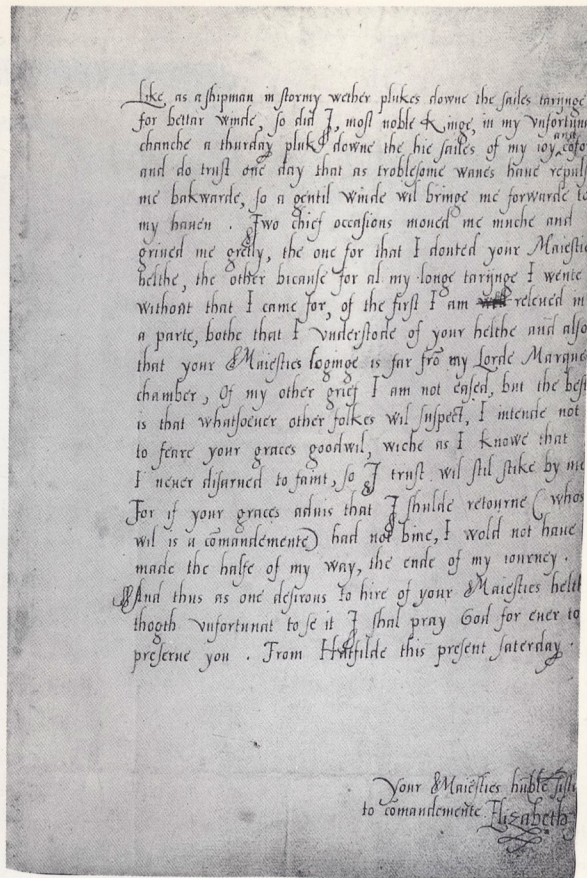 Like as a shipman in stormy wether plukes downe the sailes tarijnge
for bettar winde, so did I, most noble Kinge, in my vnfortun
chanche a thurday pluk downe the hie sailes of my ioy and cõfo
and do trust one day that as troblesome waues haue repuls
me bakwarde, so a gentil winde wil bringe me forwarde to
my hauen . Two chief occasions moued me muche and
griued me gretly, the one for that I douted your Maiestie
helthe, the other bicause for al my longe tarijnge I wente
without that I came for, of the first I am releued in
a parte, bothe that I vnderstode of your helthe and also
that your Maiesties loginge is far frõ my Lorde Marque
chamber, Of my other grief I am not eased, but the best
is that whatsoeuer other folkes wil suspect, I intende not
to feare your graces goodwil, wiche as I knowe that
I neuer disarued to faint, so I trust wil stil stike by me
For if your graces aduis that I shulde retourne (whos
wil is a cõmandemente) had not bine, I wold not haue
made the halfe of my way, the ende of my iourney .
And thus as one desirous to hire of your Maiesties helth
thogth vnfortunat to se it I shal pray God for euer to
preserue you . From Hatfilde this present saterday .
Your Maiesties hũble sist
to comandemente Elizabeth